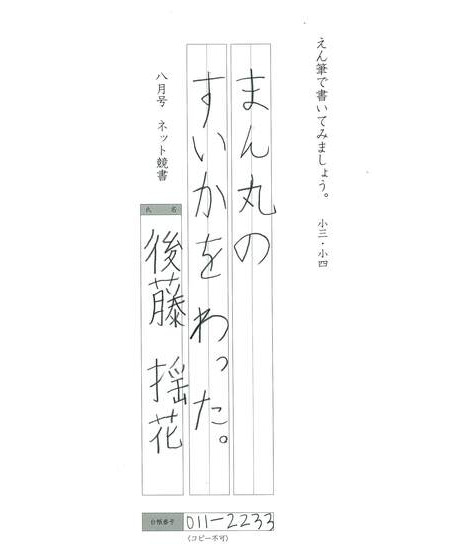 えん筆で書いてみましょう。 小三・小四
まん丸の
すいかをわった。
八月号 ネット競書
氏 名
後藤 揺花
台帳番号 011-2233
(コピー不可)